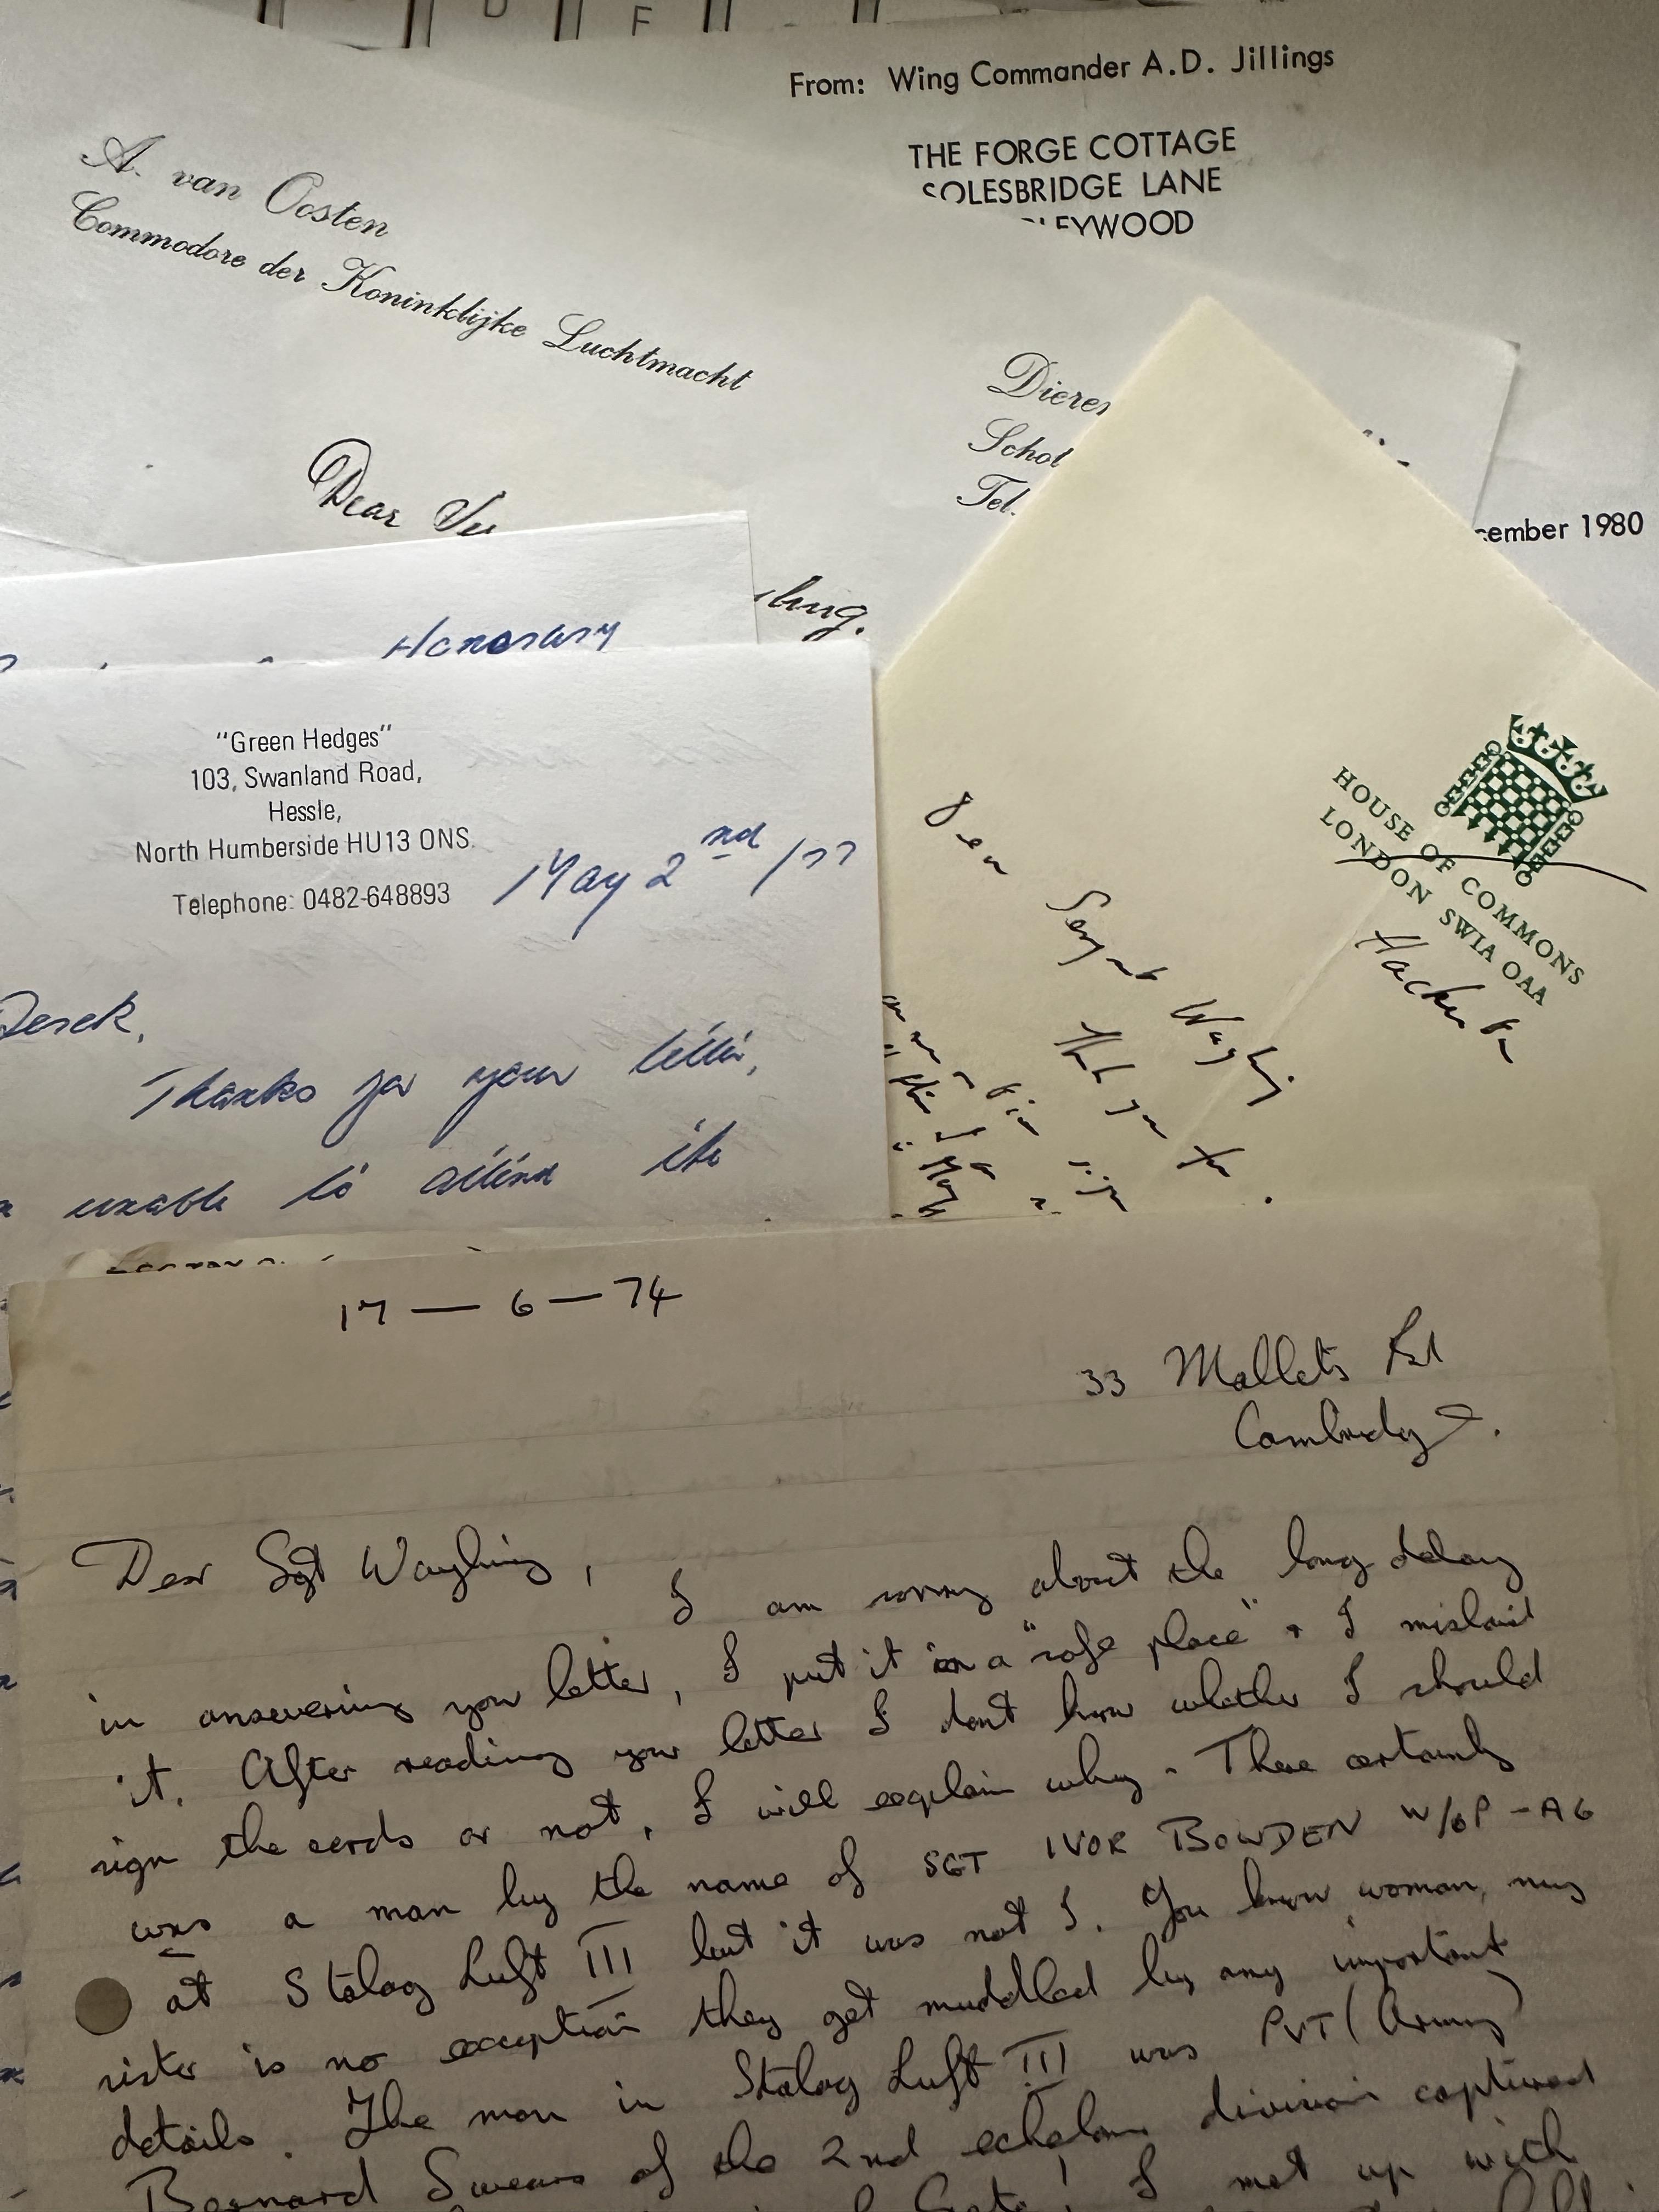 F
From: Wing Commander A.D. Jillings
THE FORGE COTTAGE
SOLESBRIDGE LANE
EYWOOD
cember 1980
A. van Oosten
Commodore der Koninklijke Luchtmacht
Dieren
Schol
Tel.
Dear
Honorary
"Green Hedges"
103, Swanland Road,
Hessle,
North Humberside HU13 0NS.
Telephone: 0482-648893
May 2nd /77
Derek,
Thanks for your letter,
unable to attend the
HOUSE OF COMMONS
LONDON SW1A 0AA
Dear Sergeant
Thank you for
17 — 6 — 74
33 Mallets Rd
Cambridge.
Dear Sgt Waughing, I am sorry about the long delay
in answering your letter, I put it in a "safe place" + I mislaid
it. After reading your letter I dont know whether I should
sign the cards or not, I will explain why. There certainly
was a man by the name of SGT IVOR BOWDEN W/OP - AG
at Stalag Luft III but it was not I. You know woman, my
sister is no exception they get muddled by any important
details. The man in Stalag Luft III was PVT (Army)
Bernard Swears of the 2nd echelon division captured
I met up with